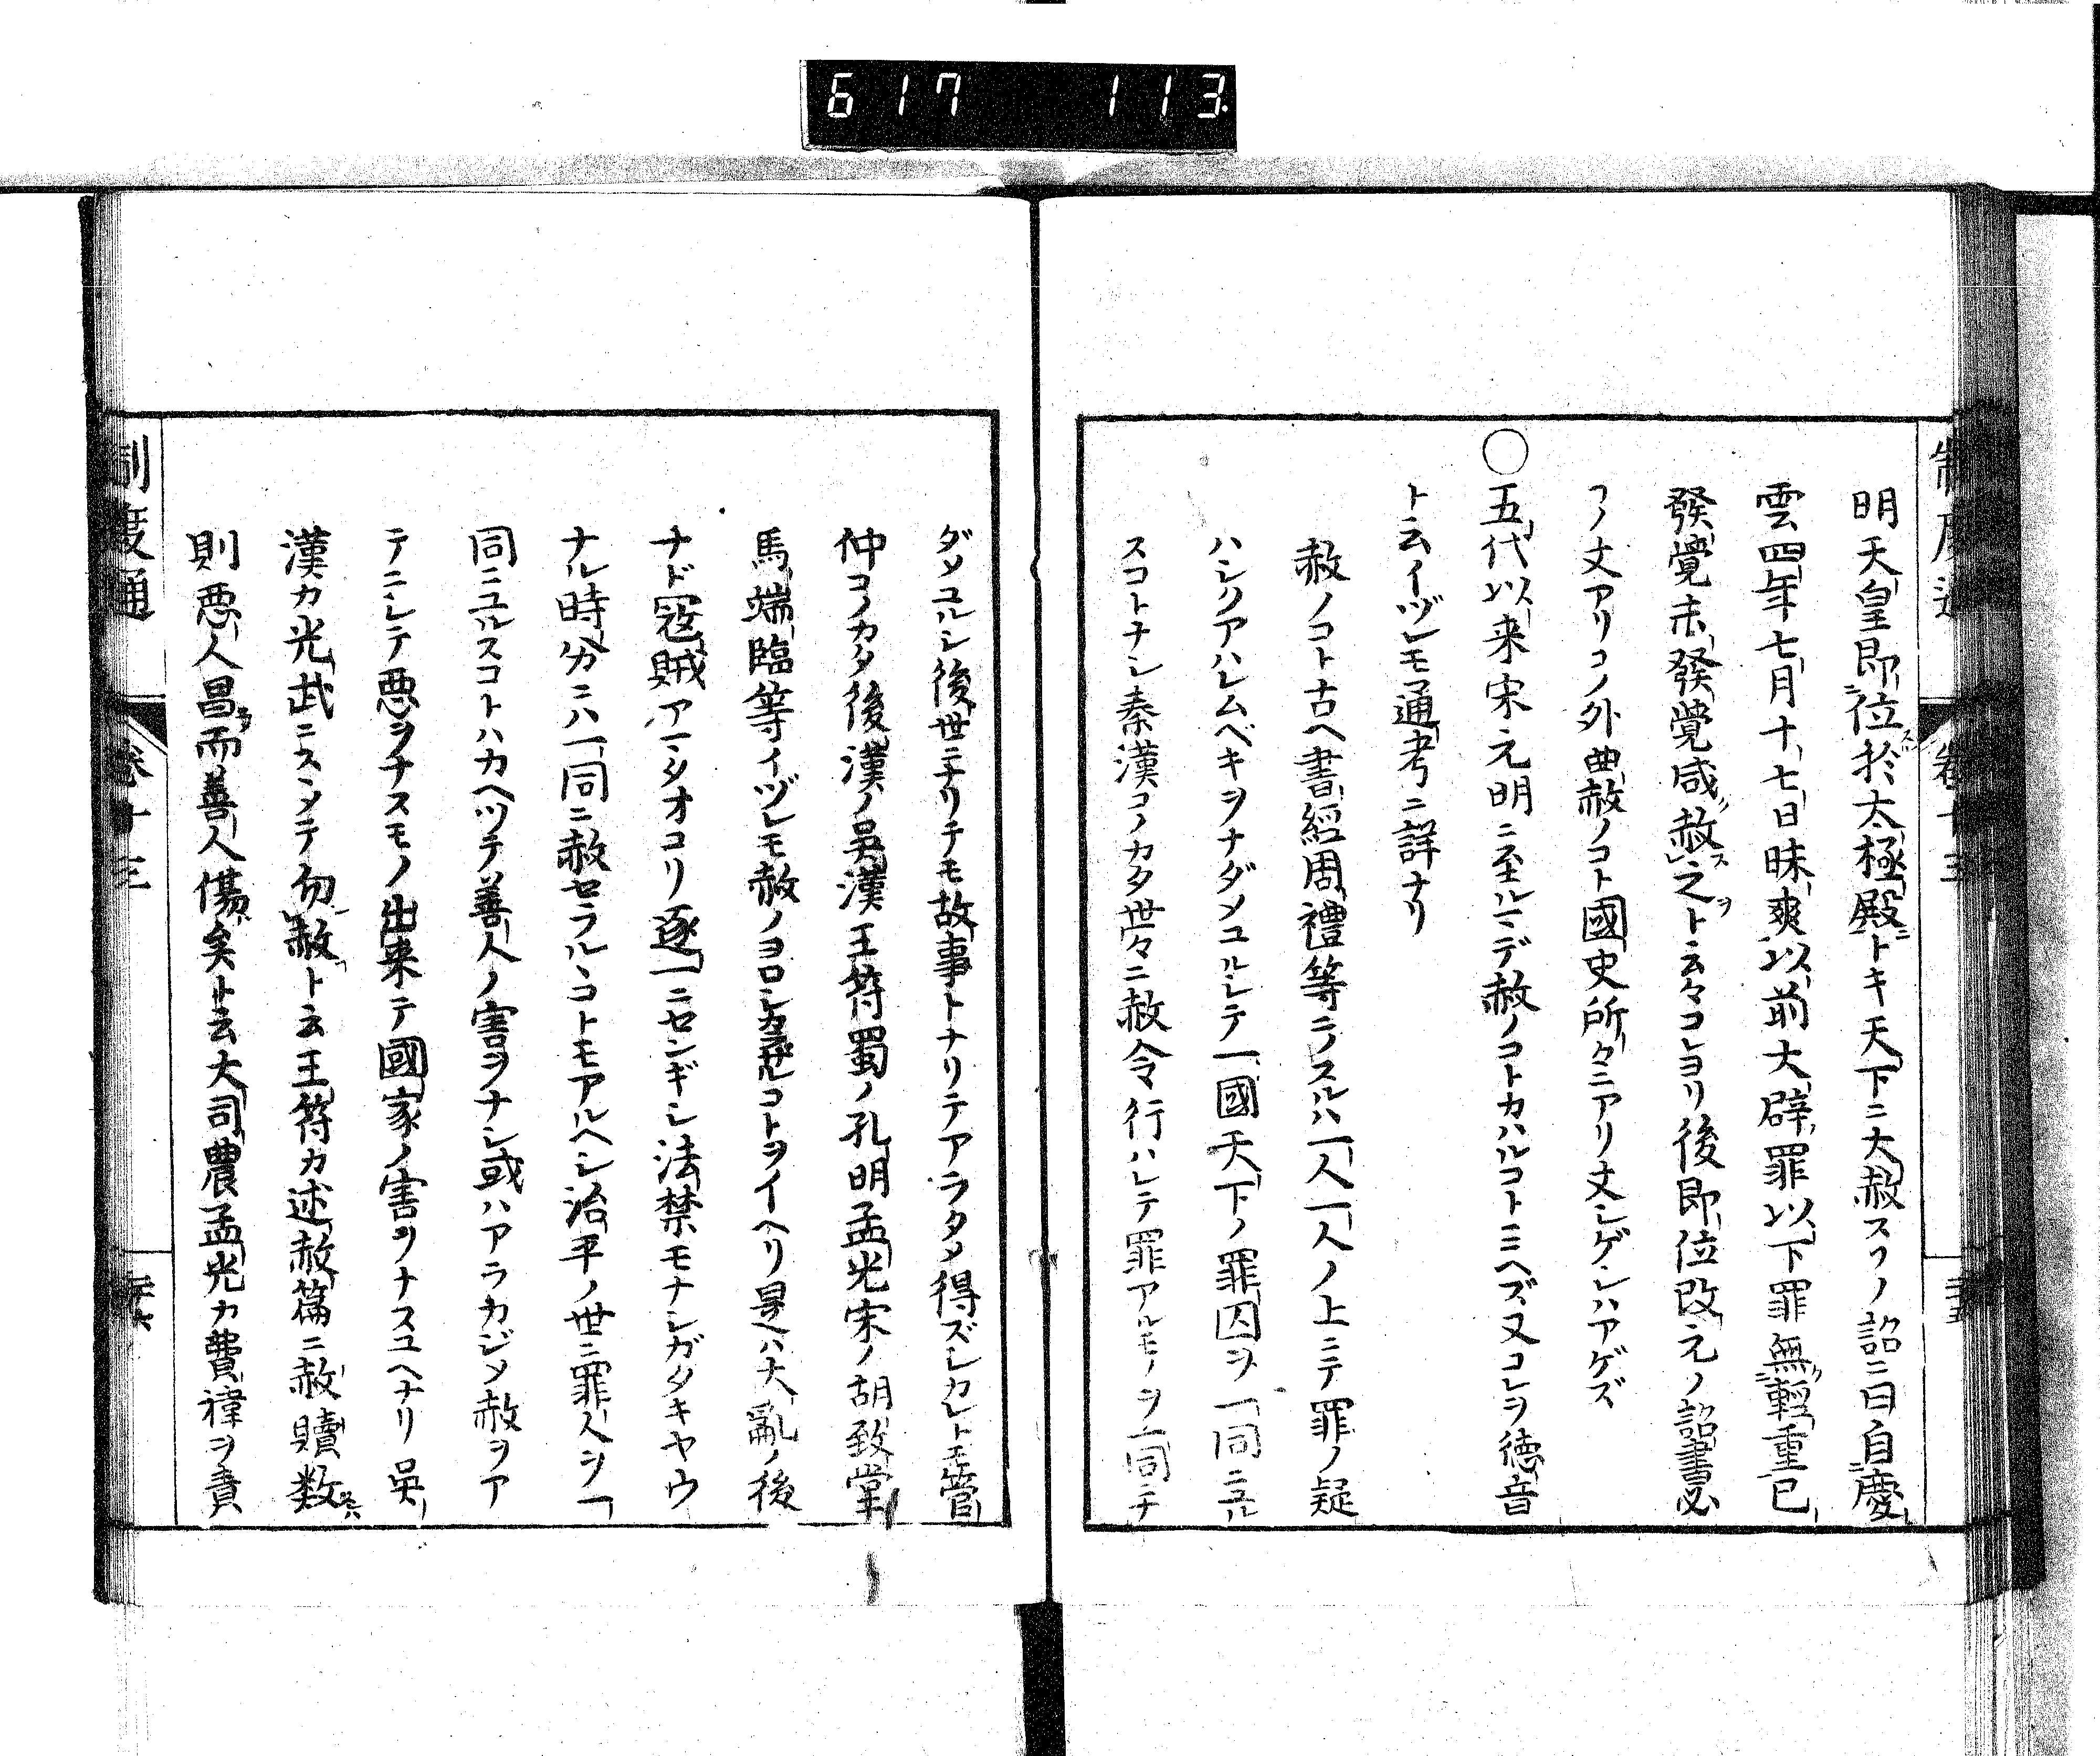 617 113.
明天皇即位於太極殿トキ天下ニ大赦スフノ詔ニ曰自慶
雲四年七月十七日昧爽以前大辟罪以下罪無輕重已
發覺未發覺咸赦之ト云々コレヨリ後即位改元ノ詔書必
フノ文アリコノ外曲赦ノコト國史所々ニアリ文シゲシハアゲズ
〇五代以来宋元明ニ至ルマデ赦ノコトカハルコトミヘズ又コレヲ徳音
ト云イヅレモ通考ニ詳ナリ
赦ノコト古ヘ書經周禮等ニノスルハ一人一人ノ上ニテ罪ノ疑
ハシクアハレムベキヲナダメユルシテ一國天下ノ罪囚ヲ一同ニ
スコトナシ秦漢コノカタ世々ニ赦令行ハレテ罪アルモノヲ一同ニ
ダメユルシ後世ニナリテモ故事トナリテアラタメ得ズシカレトモ管
仲コノカタ後漢ノ吳漢王符蜀ノ孔明孟光宋ノ胡致堂
馬端臨等イヅレモ赦ノヨロシカラザルコトヲイヘリ是ハ大亂ノ後
ナド寇賊アマタオコリ逐一ニセンギシ法禁モナシガタキヤウ
ナル時分ニハ一同ニ赦セラルヽコトモアルヘシ治平ノ世ニ罪人ヲ一
同ニユルスコトハカヘツテ善人ノ害ヲナシ或ハアラカジメ赦ヲア
テニシテ悪ヲナスモノ出来テ國家ノ害ヲナスユヘナリ吳
漢カ光武ニスヽメテ勿赦ト云王符カ述赦篇ニ赦贖数
則悪人昌而善人傷矣ト云大司農孟光カ費禕ヲ責
制度通 卷十三